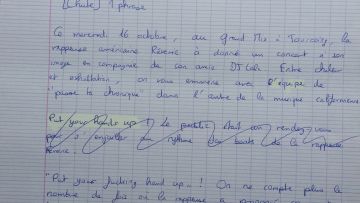 [Chute] 1 phrase
Ce mercredi 16 octobre, au Grand Mix à Tourcoing, la
rappeuse américaine Reverie a donné un concert à son
image en compagnie de son amis DJ Lala. Entre chaleur
et exhibition, on vous emmène avec l'équipe de
"pause ta chronique" dans l'antre de la musique californienne
Put your hands up !) Le public était au rendez-vous
pour s'enjailler au rythme des beats de la rappeuse
Reverie !
"Put your fucking hand up..! On ne compte plus le
nombre de fois où la rappeuse a prononcé